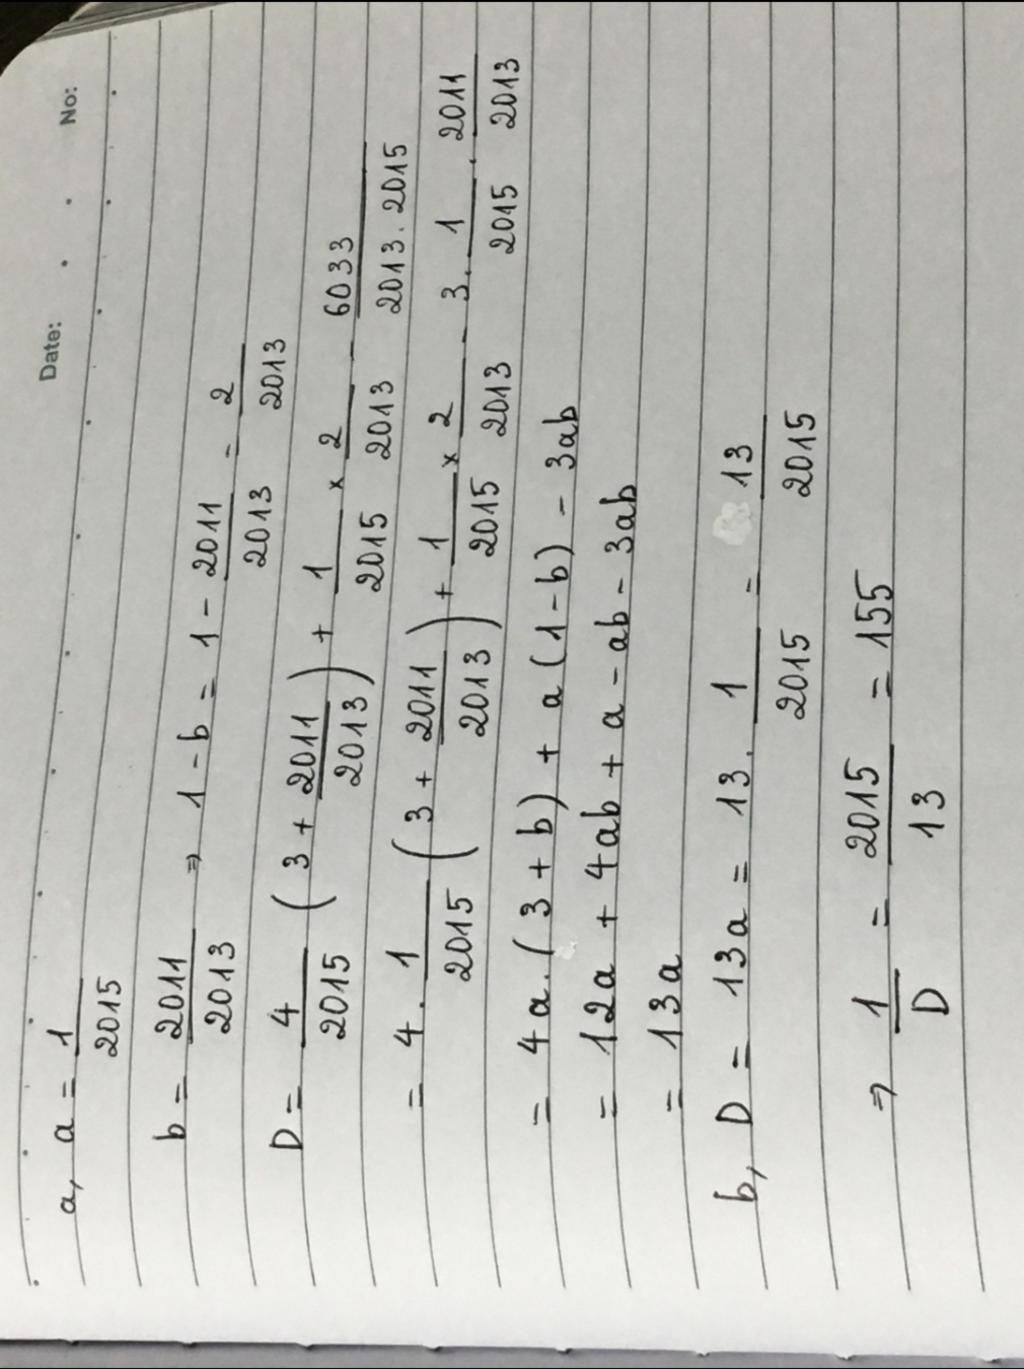 Date: No:
a, a = 1/2015
b = 2011/2013 => 1 - b = 1 - 2011/2013 = 2/2013
D = 4/2015 (3 + 2011/2013) + 1/2015 × 2/2013 - 6033/2013.2015
= 4 . 1/2015 (3 + 2011/2013) + 1/2015 × 2/2013 - 3 . 1/2015 . 2011/2013
= 4a . (3 + b) + a (1 - b) - 3ab
= 12a + 4ab + a - ab - 3ab
= 13a
b, D = 13a = 13 . 1/2015 = 13/2015
=> 1/D = 2015/13 = 155